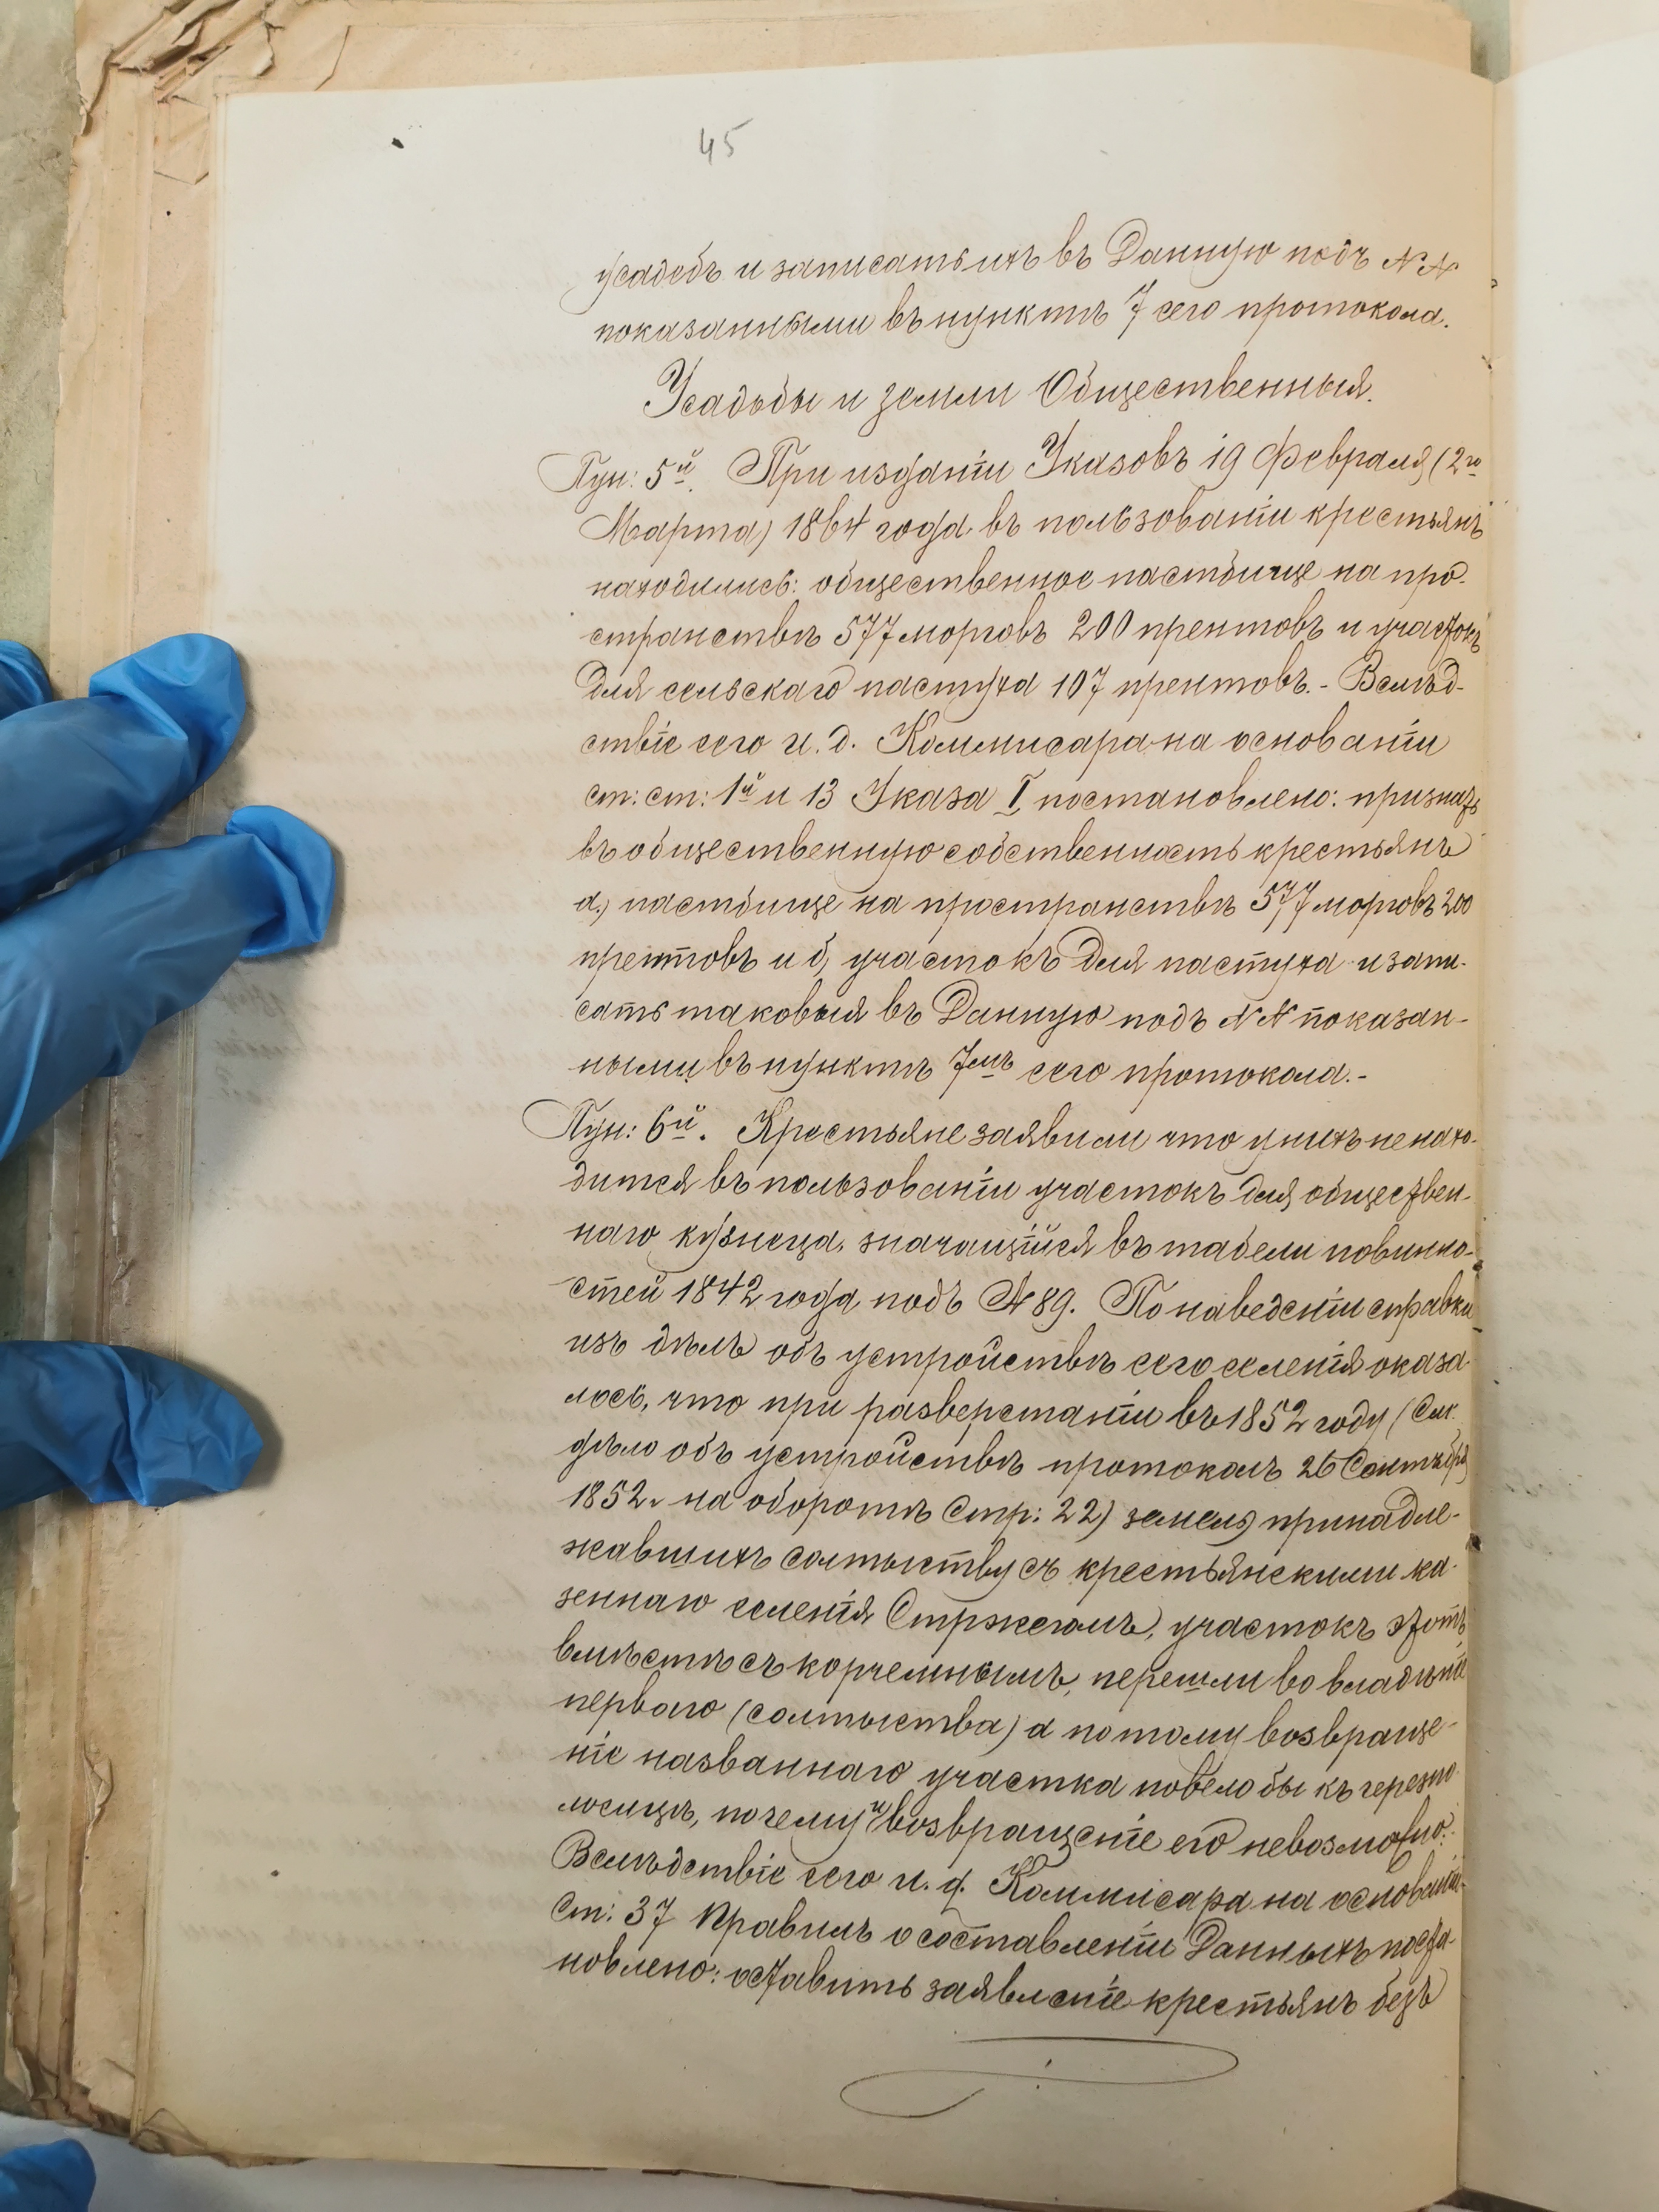 45
усадебъ и записать ихъ въ Данную подъ NN
показанными въ пунктѣ 7 сего протокола.
Усадьбы и земли Общественныя.
Пун: 5й. При изданіи Указовъ 19 Февраля (2го
Марта) 1864 года въ пользованіи крестьянъ
находились: общественное пастбище на про-
странствѣ 577 морговъ 200 прентовъ и участокъ
для сельскаго пастуха 107 прентовъ.- Вслѣд-
ствіе сего и. д. Коммисара на основаніи
ст: ст: 1й и 13 Указа I, постановлено: признать
въ общественную собственность крестьянъ
а,) пастбище на пространствѣ 577 морговъ 200
прентовъ и б, участокъ для пастуха и запи-
сать таковыя въ Данную подъ NN показан-
ными въ пунктѣ 7мъ сего протокола.-
Пун: 6й. Крестьяне заявили что у нихъ не нахо-
дится въ пользованіи участокъ для обществен-
наго кузнеца, значащійся въ табели повинно-
стей 1842 года подъ № 89. По наведеніи справки
изъ дѣлъ объ устройствѣ сего селенія оказа-
лось, что при разверстаніи въ 1852 году (См.
дѣло объ устройствѣ протоколъ 26 Сентября
1852 г. на оборотѣ Стр: 22) земель принадле-
жавшихъ солтыству съ крестьянскими ка-
зеннаго селенія Стржегомъ, участокъ этотъ
вмѣстѣ съ корчемнымъ, перешли во владѣніе
перваго (солтыства) а потому возвраще-
ніе названнаго участка повело бы къ черезпо-
лосицѣ, почему и возвращеніе его невозможно.
Вслѣдствіе сего и. д. Коммисара на основаніи
Ст: 37 Правилъ о составленіи Данныхъ поста-
новлено: оставить заявленіе крестьянъ безъ